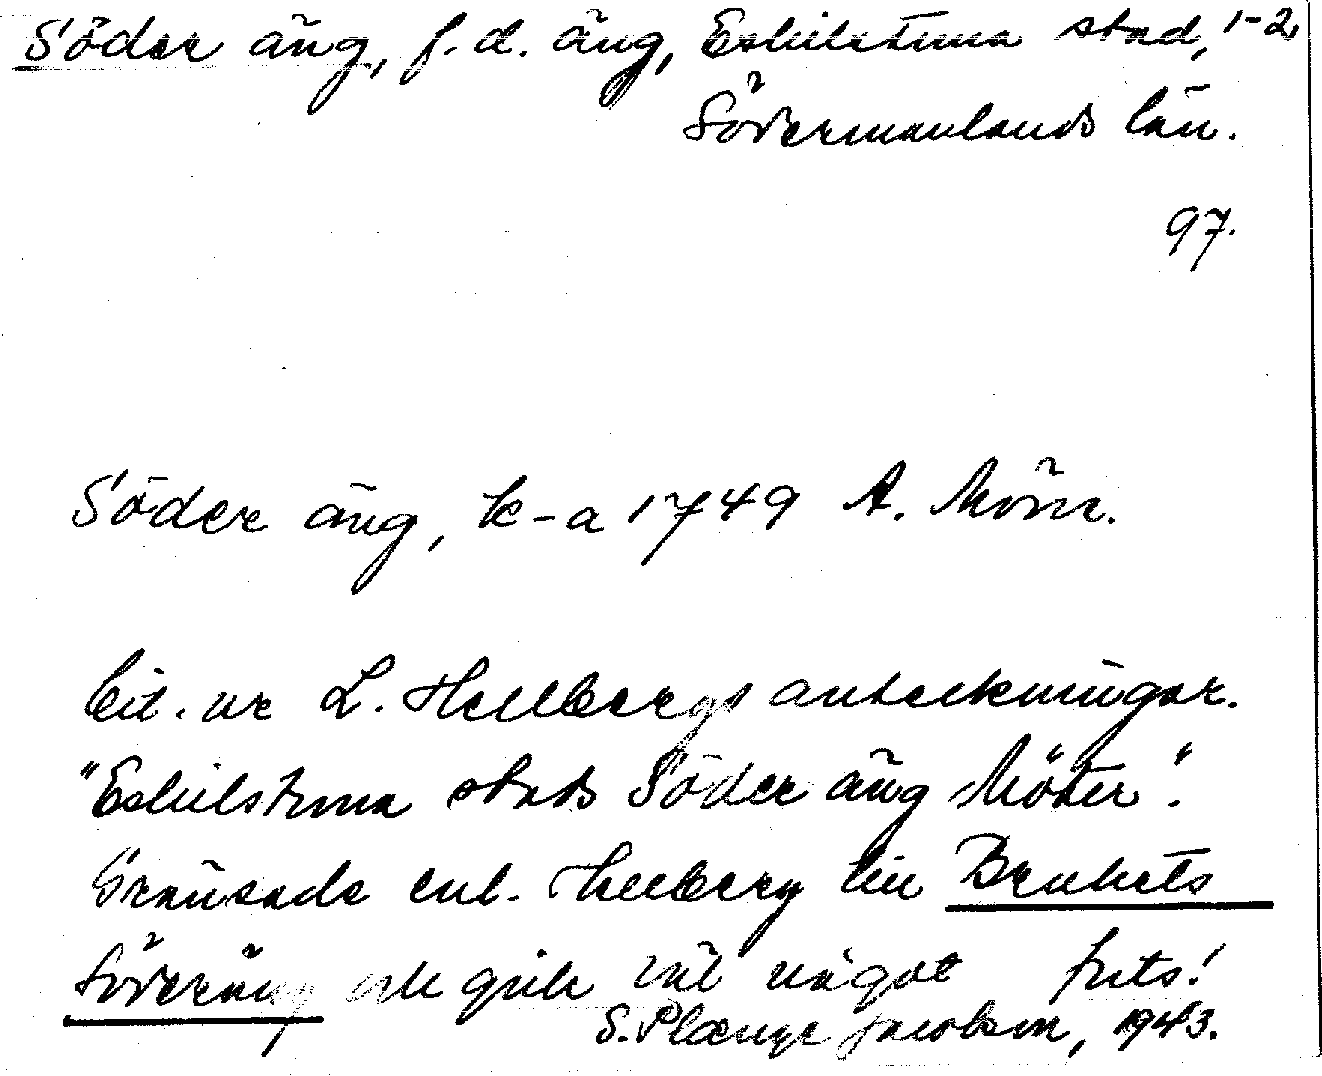 Söder äng, f. d. äng, Eskilstuna stad, 1-2,
Södermanlands län.
97.
Söder äng, k-a 1749 A. Mörn.
Cit. ur L. Hellbergs anteckningar.
"Eskilstuna stads Söder äng Möter".
Gränsade enl. Hellberg till Brukets
Söderäng och gick väl något
forts!
S. Plænge Jacobson, 1943.